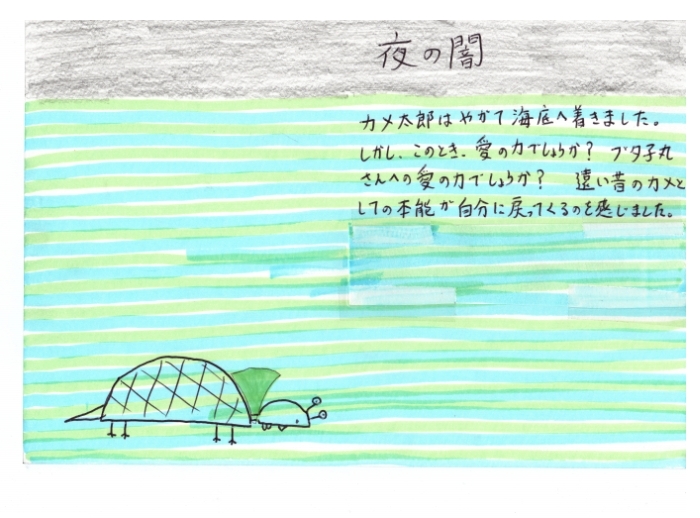 夜の闇
カメ太郎はやがて海底へ着きました。
しかし、このとき、愛の力でしょうか？ ブタ子丸
さんへの愛の力でしょうか？ 遠い昔のカメと
しての本能が自分に戻ってくるのを感じました。